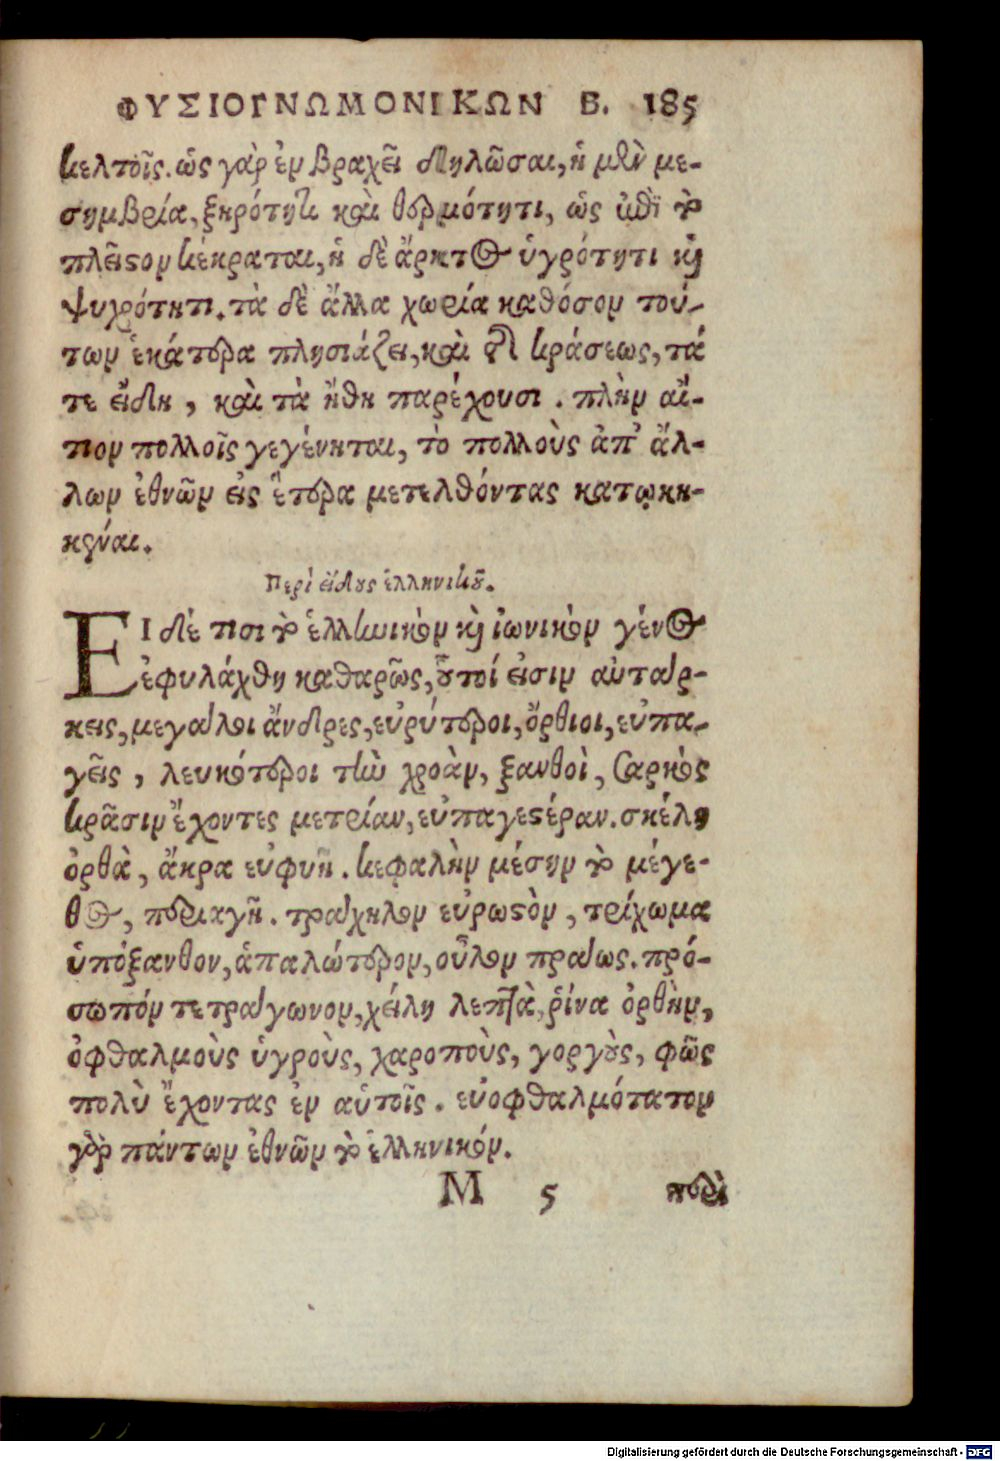 ΦΥΣΙΟΓΝΩΜΟΝΙΚΩΝ Β. 185
κελτοῖς. ὡς γὰρ ἐν βραχεῖ δηλῶσαι, ἡ μὲν με-
σημβρία, ξηρότητι καὶ θερμότητι, ὡς ἐπὶ τὸ
πλεῖστον κέκραται, ἡ δὲ ἄρκτος ὑγρότητι καὶ
ψυχρότητι. τὰ δὲ ἄλλα χωρία καθόσον τού-
των ἑκάτερα πλησιάζει, καὶ τῆς κράσεως, τά
τε εἴδη, καὶ τὰ ἤθη παρέχουσι. πλὴν αἴ-
τιον πολλοῖς γεγένηται, τὸ πολλοὺς ἀπ' ἄλ-
λων ἐθνῶν εἰς ἕτερα μετελθόντας κατῳκη-
κέναι.
Περὶ εἴδους ἑλληνικοῦ.
ΕΙ δέ τισι τὸ ἑλληνικὸν καὶ ἰωνικὸν γένος
ἐφυλάχθη καθαρῶς, οὗτοί εἰσιν αὐτάρ-
κεις, μεγάλοι ἄνδρες, εὐρύτεροι, ὄρθιοι, εὐπα-
γεῖς, λευκότεροι τὴν χροὰν, ξανθοὶ, σαρκὸς
κρᾶσιν ἔχοντες μετρίαν, εὐπαγεστέραν. σκέλη
ὀρθὰ, ἄκρα εὐφυῆ. κεφαλὴν μέσην τὸ μέγε-
θος, περιαγῆ. τράχηλον εὐρωστὸν, τρίχωμα
ὑπόξανθον, ἁπαλώτερον, οὖλον πράως. πρό-
σωπόν τετράγωνον, χείλη λεπτὰ, ῥίνα ὀρθὴν,
ὀφθαλμοὺς ὑγροὺς, χαροποὺς, γοργοὺς, φῶς
πολὺ ἔχοντας ἐν αὑτοῖς. εὐοφθαλμότατον
γὰρ πάντων ἐθνῶν τὸ ἑλληνικόν.
M 5 περὶ
Digitalisierung gefördert durch die Deutsche Forschungsgemeinschaft - DFG